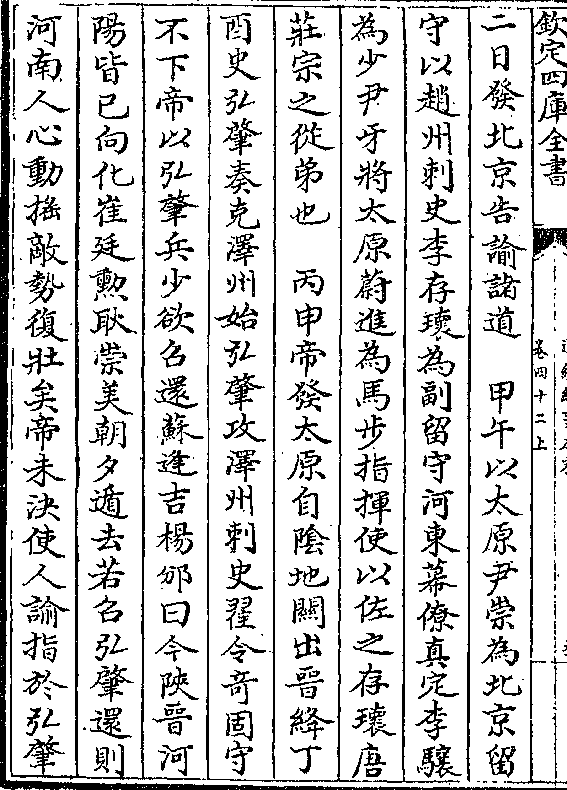 欽定四庫全書
卷四十二上
二日發北京告諭諸道　甲午以太原尹崇為北京留
守以趙州刺史李存瓌為副留守河東幕僚真定李驤
為少尹牙將太原蔚進為馬步指揮使以佐之存瓌唐
莊宗之從弟也　丙申帝發太原自陰地關出晉絳丁
酉史弘肇奏克澤州始弘肇攻澤州刺史翟令奇固守
不下帝以弘肇兵少欲召還蘇逢吉楊邠曰今陜晉河
陽皆已向化崔廷勲耿崇美朝夕遁去若召弘肇還則
河南人心動揺敵勢復壯矣帝未決使人諭指於弘肇